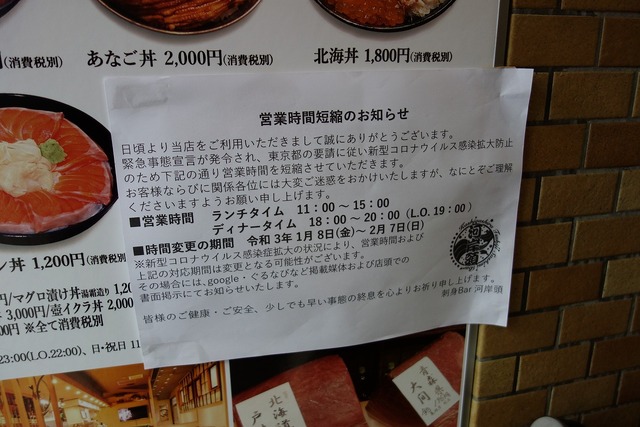 円(消費税別)
あなご丼 2,000円(消費税別)
北海丼 1,800円(消費税別)
営業時間短縮のお知らせ
日頃より当店をご利用いただきまして誠にありがとうございます。
緊急事態宣言が発令され、東京都の要請に従い新型コロナウイルス感染拡大防止
のため下記の通り営業時間を短縮させていただきます。
お客様ならびに関係各位には大変ご迷惑をおかけいたしますが、なにとぞご理解
くださいますようお願い申し上げます。
■営業時間 ランチタイム 11:00～15:00
ディナータイム 18:00～20:00(L.O. 19:00)
■時間変更の期間 令和3年1月8日(金)～2月7日(日)
※新型コロナウイルス感染症拡大の状況により、営業時間および
上記の対応期間は変更となる可能性がございます。
その場合には、google・ぐるなびなど掲載媒体および店頭での
書面掲示にてお知らせいたします。
皆様のご健康・ご安全、少しでも早い事態の終息を心よりお祈り申し上げます。
刺身Bar 河岸頭
ン丼 1,200円(消費税
円/マグロ漬け丼
3,000円/壺イクラ丼 2,000
00円 ※全て消費税別
23:00(L.O.22:00)、日・祝日 11
北海道
戸
青森
大間